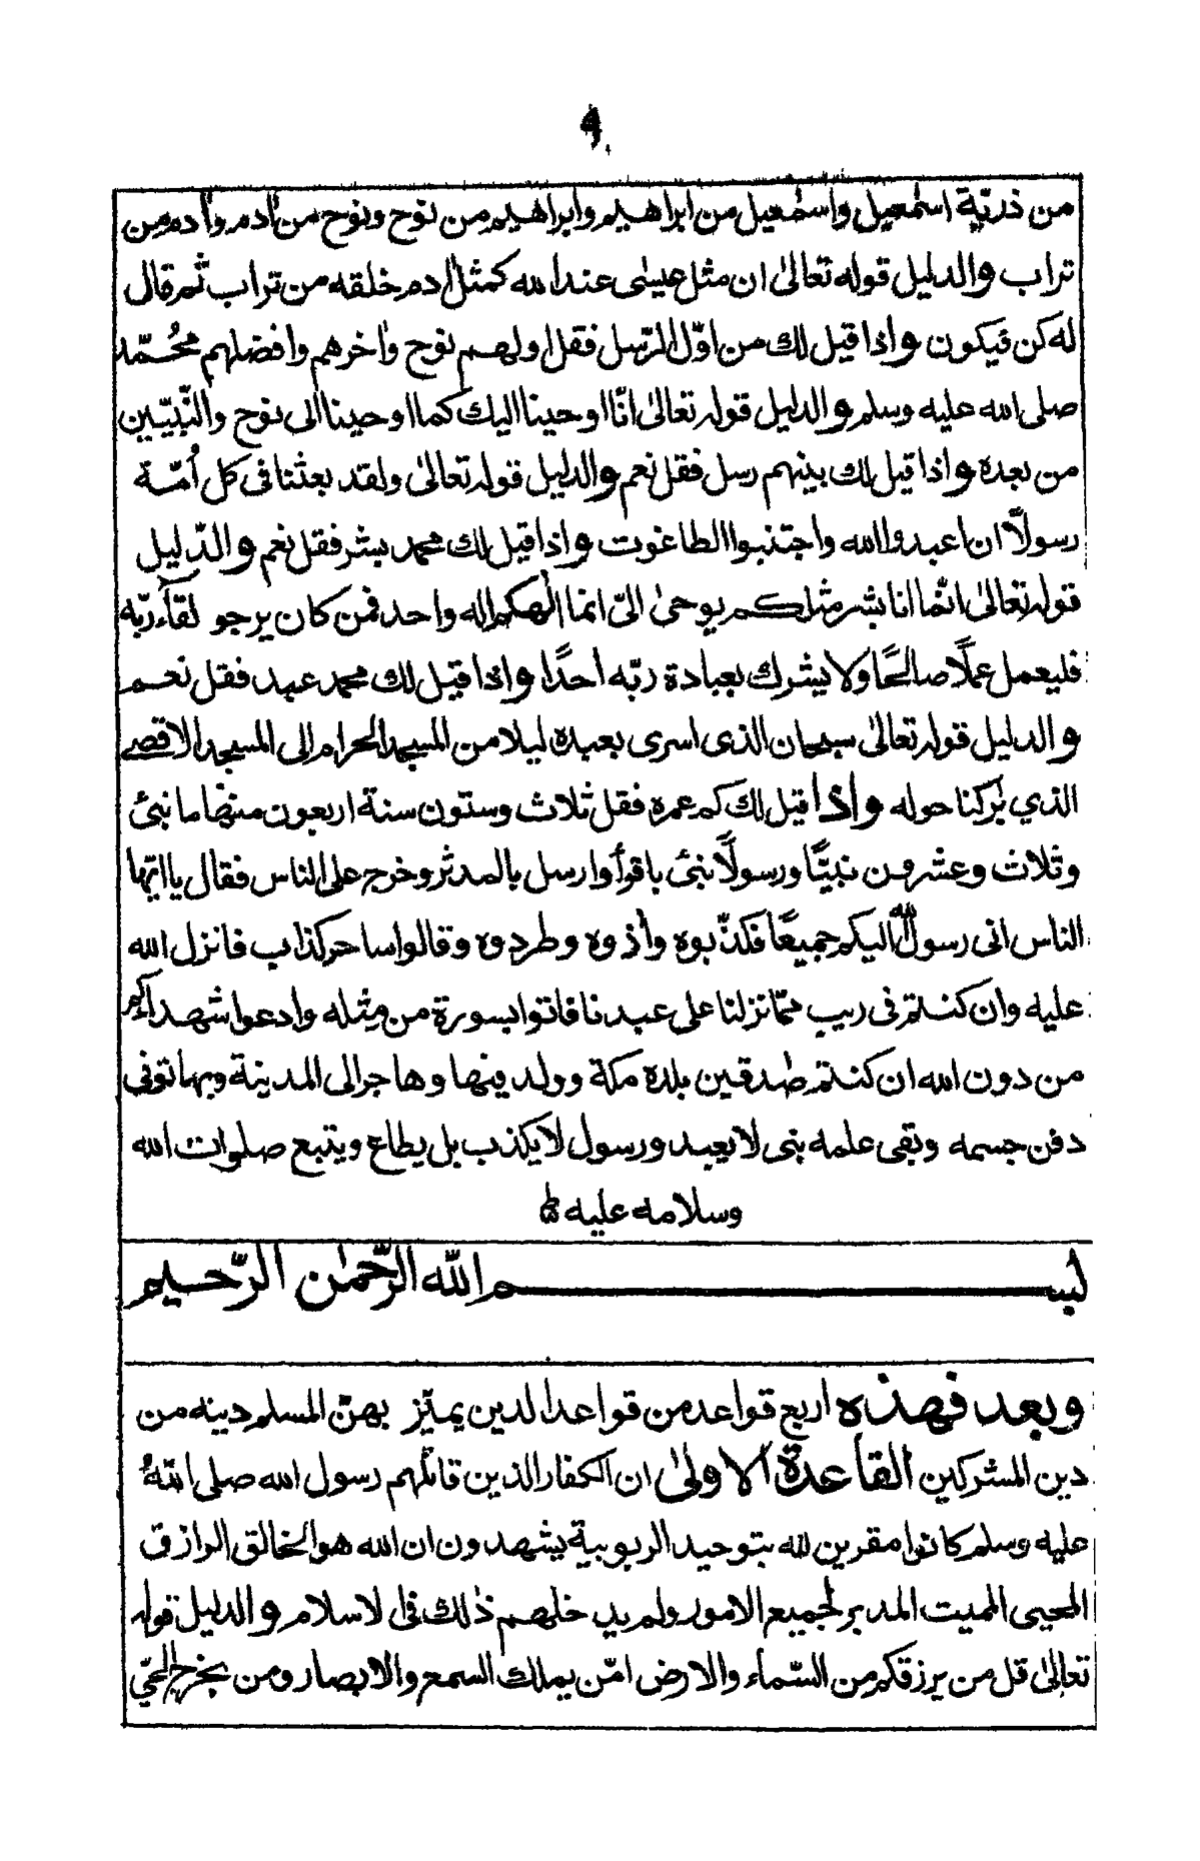 ٩
من ذريّة اسمٰعيل واسمٰعيل من ابراهيم وابراهيم من نوح ونوح من اٰدم واٰدم من
تراب والدليل قوله تعالىٰ ان مثل عيسىٰ عند الله كمثل اٰدم خلقه من تراب ثم قال
له كن فيكون واذا قيل لك من اوّل الرّسل فقل اولهم نوح واٰخرهم وافضلهم محُمّد
صلى الله عليه وسلم والدليل قوله تعالىٰ انّا اوحينا اليك كما اوحينا الى نوح والنّبيّين
من بعده واذا قيل لك بينهم رسل فقل نعم والدليل قوله تعالىٰ ولقد بعثنا فى كل اُمّة
رسولًا ان اعبدوا الله واجتنبوا الطاغوت واذا قيل لك محمد بشر فقل نعم والدّليل
قوله تعالىٰ انّما انا بشر مثلكم يوحىٰ الىّ انما الٰهكم اله واحد فمن كان يرجو لقآء ربّه
فليعمل عملًا صالحًا ولا يشرك بعبادة ربّه احدًا واذا قيل لك محمد عبد فقل نعم
والدليل قوله تعالىٰ سبحان الذى اسرى بعبده ليلا من المسجد الحرام الى المسجد الاقصے
الذي بٰركنا حوله واذا قيل لك كم عمره فقل ثلاث وستون سنة اربعون منها ما نبئ
وثلاث وعشرون نبيًّا ورسولًا نبئ باقرأ وارسل بالمدثر وخرج على الناس فقال يا ايّها
الناس انى رسول الله اليكم جميعًا فكذّبوه واٰذوه وطردوه وقالوا ساحر كذاب فانزل الله
عليه وان كنتم فى ريب ممّا نزلنا على عبدنا فاتوا بسورة من مثله وادعوا شهداءكم
من دون الله ان كنتم صٰدقين بلده مكة وولد فيها وهاجر الى المدينة وبها توفى
دفن جسمه وبقى علمه نبى لا يعبد ورسول لا يكذب بل يطاع ويتبع صلوات الله
وسلامه عليه
بسم الله الرّحمٰن الرّحيم
وبعد فهذه اربع قواعد من قواعد الدين يميّز بهنّ المسلم دينه من
دين المشركين القاعدة الاولىٰ ان الكفار الذين قاتلهم رسول الله صلى اللهُ
عليه وسلم كانوا مقرين لله بتوحيد الربوبية يشهدون ان الله هو الخالق الرازق
المحيى المميت المدبر لجميع الامور ولم يدخلهم ذٰلك فى الاسلام والدليل قوله
تعالىٰ قل من يرزقكم من السّماء والارض امّن يملك السمع والابصار ومن يخرج الحيّ